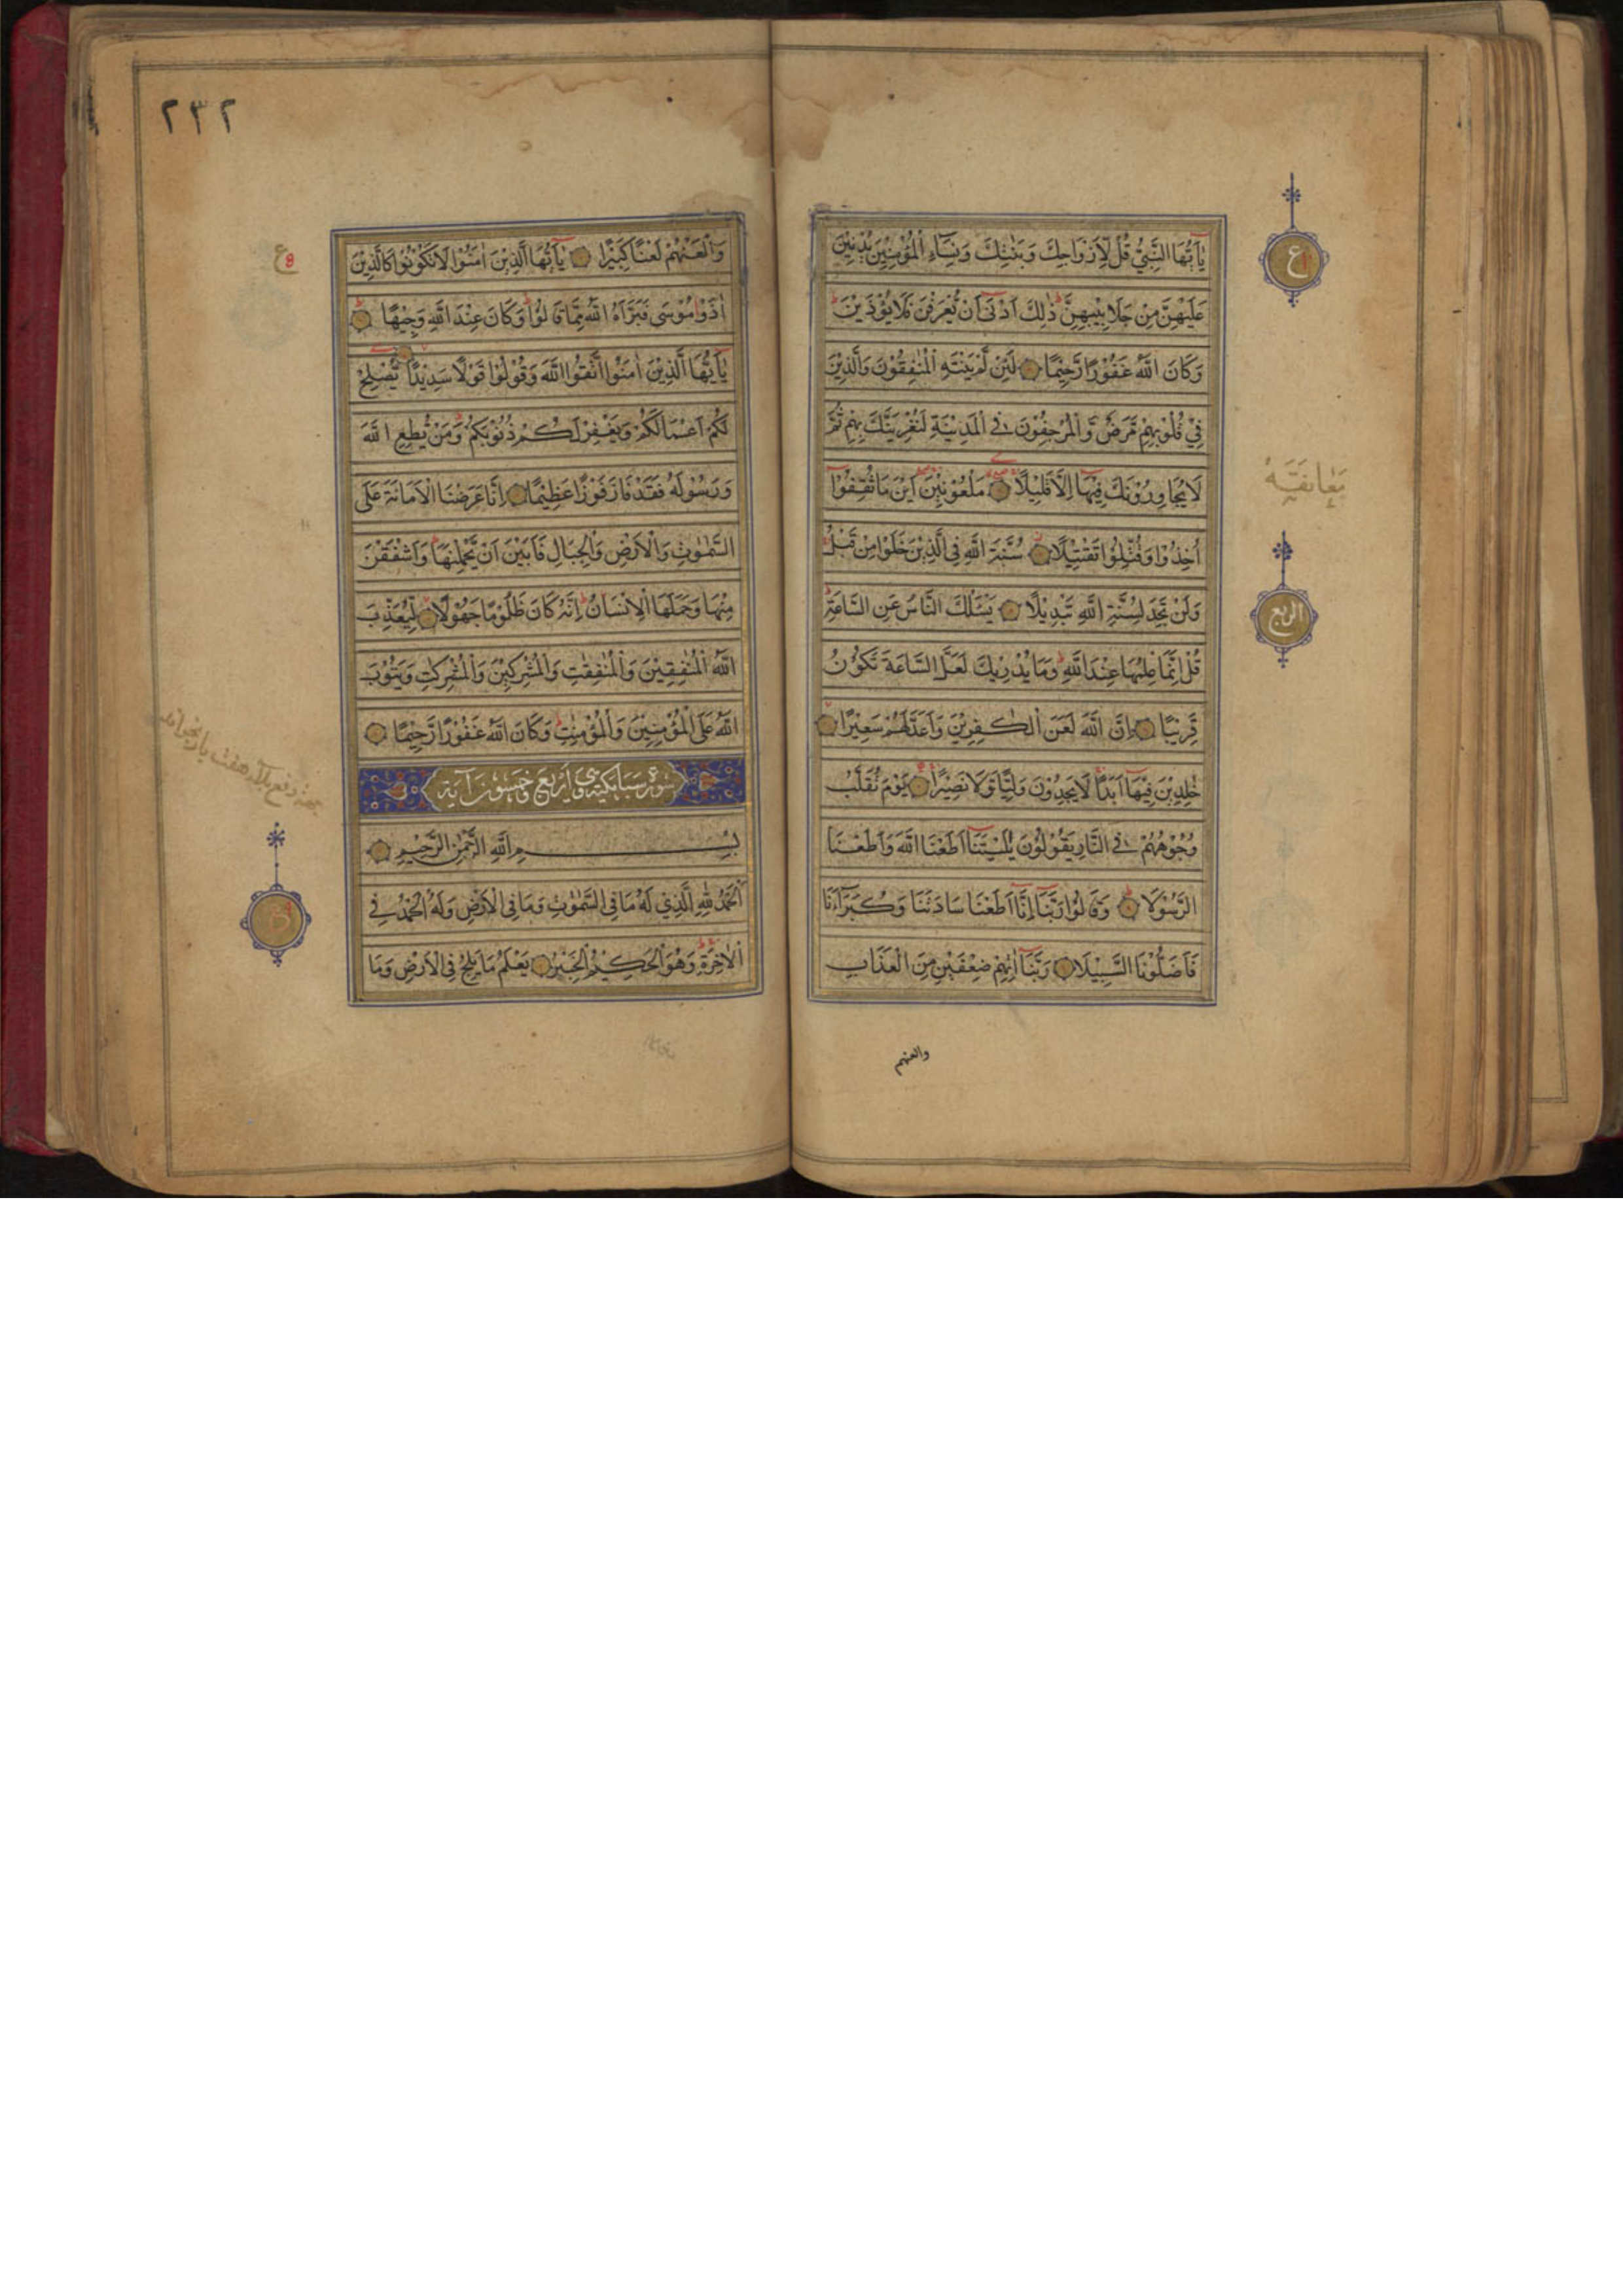 ع
يٰۤاَيُّهَا النَّبِيُّ قُلْ لِّاَزْوَاجِكَ وَبَنٰتِكَ وَنِسَآءِ الْمُؤْمِنِيْنَ يُدْنِيْنَ
عَلَيْهِنَّ مِنْ جَلَابِيْبِهِنَّ ذٰلِكَ اَدْنٰۤى اَنْ يُّعْرَفْنَ فَلَا يُؤْذَيْنَ
وَكَانَ اللّٰهُ غَفُوْرًا رَّحِيْمًا لَئِنْ لَّمْ يَنْتَهِ الْمُنٰفِقُوْنَ وَالَّذِيْنَ
فِيْ قُلُوْبِهِمْ مَّرَضٌ وَّالْمُرْجِفُوْنَ فِي الْمَدِيْنَةِ لَنُغْرِيَنَّكَ بِهِمْ ثُمَّ
لَا يُجَاوِرُوْنَكَ فِيْهَاۤ اِلَّا قَلِيْلًا مَلْعُوْنِيْنَ اَيْنَ مَا ثُقِفُوْۤا
معانقه
اُخِذُوْا وَقُتِّلُوْا تَقْتِيْلًا سُنَّةَ اللّٰهِ فِي الَّذِيْنَ خَلَوْا مِنْ قَبْلُ
وَلَنْ تَجِدَ لِسُنَّةِ اللّٰهِ تَبْدِيْلًا يَسْئَلُكَ النَّاسُ عَنِ السَّاعَةِ
الربع
قُلْ اِنَّمَا عِلْمُهَا عِنْدَ اللّٰهِ وَمَا يُدْرِيْكَ لَعَلَّ السَّاعَةَ تَكُوْنُ
قَرِيْبًا اِنَّ اللّٰهَ لَعَنَ الْكٰفِرِيْنَ وَاَعَدَّ لَهُمْ سَعِيْرًا
خٰلِدِيْنَ فِيْهَاۤ اَبَدًا لَا يَجِدُوْنَ وَلِيًّا وَّلَا نَصِيْرًا يَوْمَ تُقَلَّبُ
وُجُوْهُهُمْ فِي النَّارِ يَقُوْلُوْنَ يٰلَيْتَنَاۤ اَطَعْنَا اللّٰهَ وَاَطَعْنَا
الرَّسُوْلَا وَقَالُوْا رَبَّنَاۤ اِنَّاۤ اَطَعْنَا سَادَتَنَا وَكُبَرَآءَنَا
فَاَضَلُّوْنَا السَّبِيْلَا رَبَّنَاۤ اٰتِهِمْ ضِعْفَيْنِ مِنَ الْعَذَابِ
والعنهم
٢٣٢
وَالْعَنْهُمْ لَعْنًا كَبِيْرًا يٰۤاَيُّهَا الَّذِيْنَ اٰمَنُوْا لَا تَكُوْنُوْا كَالَّذِيْنَ
ع
اٰذَوْا مُوْسٰى فَبَرَّاَهُ اللّٰهُ مِمَّا قَالُوْا وَكَانَ عِنْدَ اللّٰهِ وَجِيْهًا
يٰۤاَيُّهَا الَّذِيْنَ اٰمَنُوا اتَّقُوا اللّٰهَ وَقُوْلُوْا قَوْلًا سَدِيْدًا يُّصْلِحْ
لَكُمْ اَعْمَالَكُمْ وَيَغْفِرْ لَكُمْ ذُنُوْبَكُمْ وَمَنْ يُّطِعِ اللّٰهَ
وَرَسُوْلَهٗ فَقَدْ فَازَ فَوْزًا عَظِيْمًا اِنَّا عَرَضْنَا الْاَمَانَةَ عَلَى
السَّمٰوٰتِ وَالْاَرْضِ وَالْجِبَالِ فَاَبَيْنَ اَنْ يَّحْمِلْنَهَا وَاَشْفَقْنَ
مِنْهَا وَحَمَلَهَا الْاِنْسَانُ اِنَّهٗ كَانَ ظَلُوْمًا جَهُوْلًا لِّيُعَذِّبَ
اللّٰهُ الْمُنٰفِقِيْنَ وَالْمُنٰفِقٰتِ وَالْمُشْرِكِيْنَ وَالْمُشْرِكٰتِ وَيَتُوْبَ
اللّٰهُ عَلَى الْمُؤْمِنِيْنَ وَالْمُؤْمِنٰتِ وَكَانَ اللّٰهُ غَفُوْرًا رَّحِيْمًا
سورة سبا مكية وهي اربع وخمسون آية
بِسْمِ اللّٰهِ الرَّحْمٰنِ الرَّحِيْمِ
اَلْحَمْدُ لِلّٰهِ الَّذِيْ لَهٗ مَا فِي السَّمٰوٰتِ وَمَا فِي الْاَرْضِ وَلَهُ الْحَمْدُ فِي
الْاٰخِرَةِ وَهُوَ الْحَكِيْمُ الْخَبِيْرُ يَعْلَمُ مَا يَلِجُ فِي الْاَرْضِ وَمَا